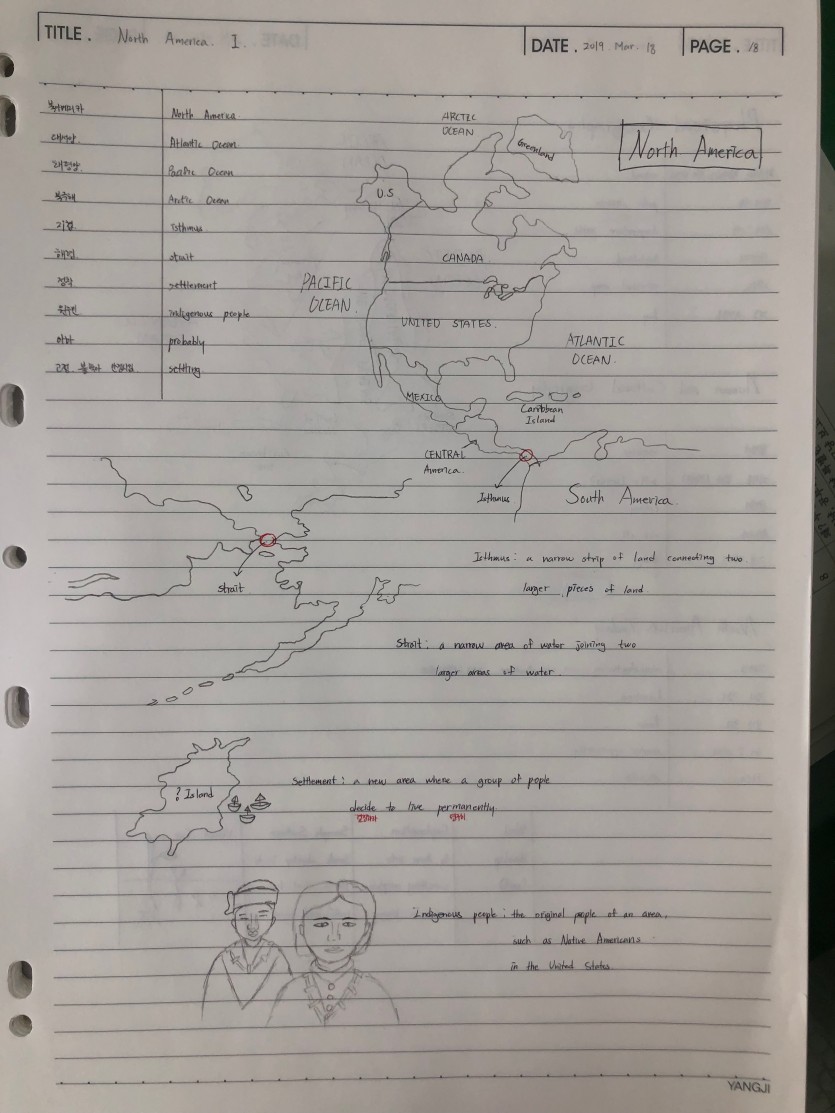 TITLE. North America. 1.
DATE. 2019. Mar. 18
PAGE. /8
North America
북아메리카 North America
대서양 Atlantic Ocean
태평양 Pacific Ocean
북극해 Arctic Ocean
지협 Isthmus
해협 strait
정착 settlement
원주민 indigenous people
아마 probably
settling
ARCTIC
OCEAN
Greenland
U.S
CANADA
PACIFIC
OCEAN.
UNITED STATES.
ATLANTIC
OCEAN.
MEXICO
Caribbean
Island
CENTRAL
America.
Isthmus
South America.
strait
Isthmus : a narrow strip of land connecting two
larger pieces of land.
Strait : a narrow area of water joining two
larger areas of water.
? Island
Settlement : a new area where a group of pople
decide to live permanently.
Indigenous people : the original people of an area,
such as Native Americans
in the United States.
YANGJI